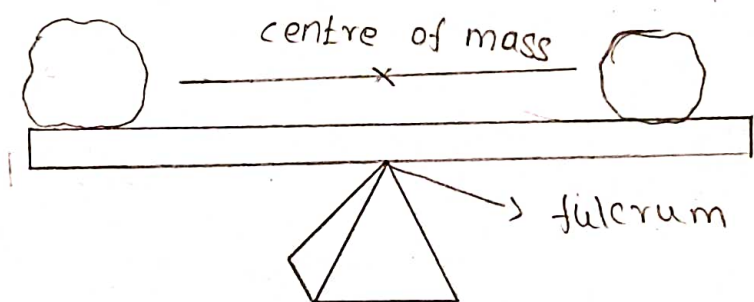 centre of mass
fulcrum